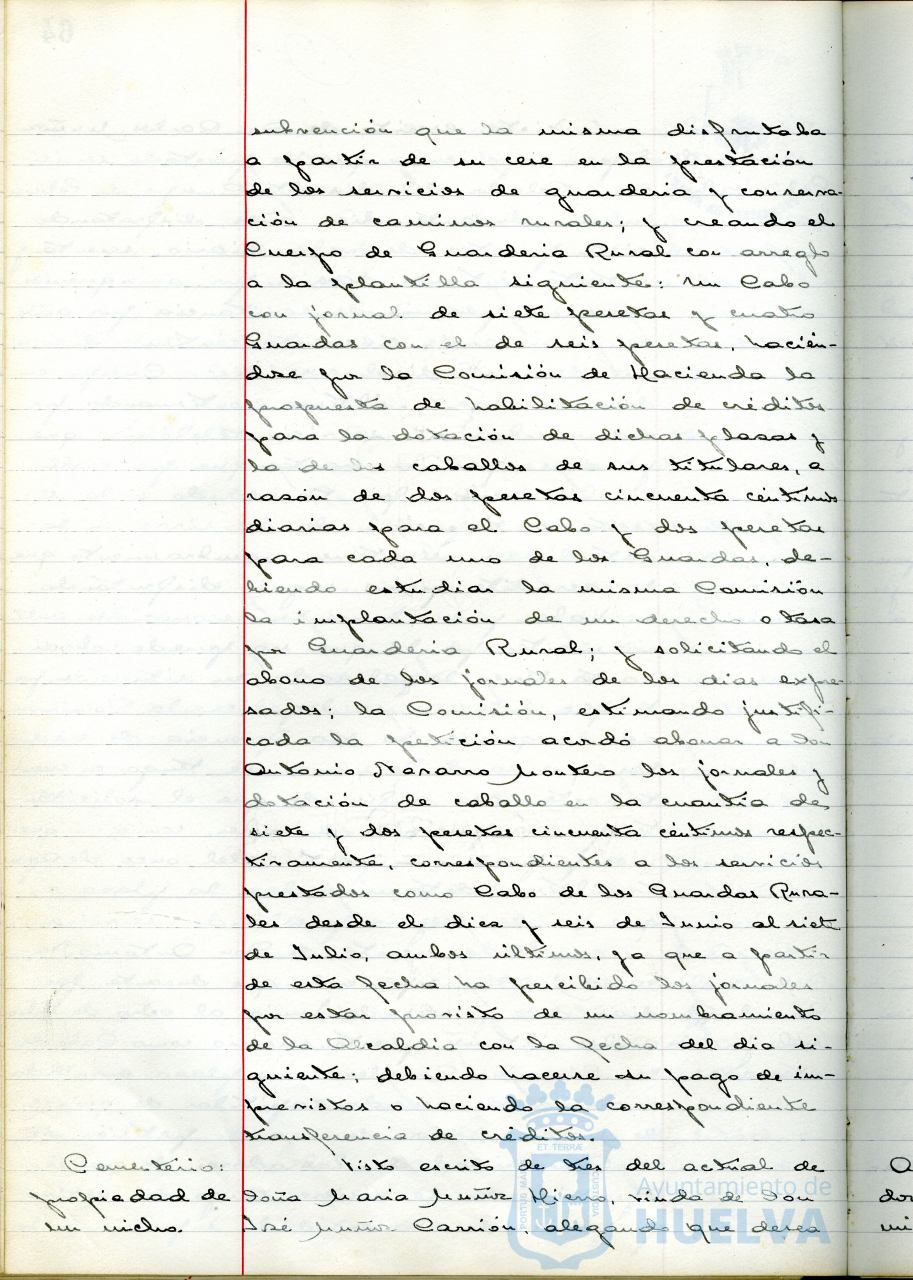 subvención que la misma disfrutaba
a partir de su cese en la prestación
de los servicios de guarderia y conserva-
ción de caminos rurales; y creando el
Cuerpo de Guarderia Rural con arreglo
a la plantilla siguiente: un Cabo
con jornal de siete pesetas y cuatro
Guardas con el de seis pesetas, hacién-
dose por la Comisión de Hacienda la
propuesta de habilitación de créditos
para la dotación de dichas plazas y
la de los caballos de sus titulares, a
razón de dos pesetas cincuenta céntimos
diarias para el Cabo y dos pesetas
para cada uno de los Guardas, de-
biendo estudiar la misma Comisión
la implantación de un derecho o tasa
por Guarderia Rural; y solicitando el
abono de los jornales de los dias expre-
sados; la Comisión, estimando justifi-
cada la petición acordó abonar a Don
Antonio Navarro Montero los jornales y
dotación de caballo en la cuantia de
siete y dos pesetas cincuenta céntimos respec-
tivamente, correspondientes a los servicios
prestados como Cabo de los Guardas Rura-
les desde el diez y seis de Junio al siete
de Julio, ambos últimos, ya que a partir
de esta fecha ha percibido los jornales
por estar provisto de un nombramiento
de la Alcaldia con la fecha del dia si-
guiente; debiendo hacerse su pago de im-
previstos o haciendo la correspondiente
transferencia de créditos.
Cementerio: Visto escrito de tres del actual de
propiedad de Doña Maria Muñoz Hierro, viuda de Don
un nicho. José Muñoz Carrión, alegando que desea
Ayuntamiento de
HUELVA